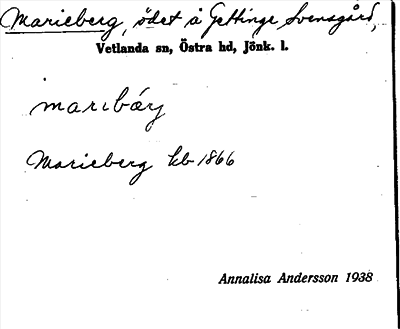 Marieberg, ödet å Gettinge Svensgård,
Vetlanda sn, Östra hd, Jönk. l.
marıbærj
Marieberg kb 1866
Annalisa Andersson 1938